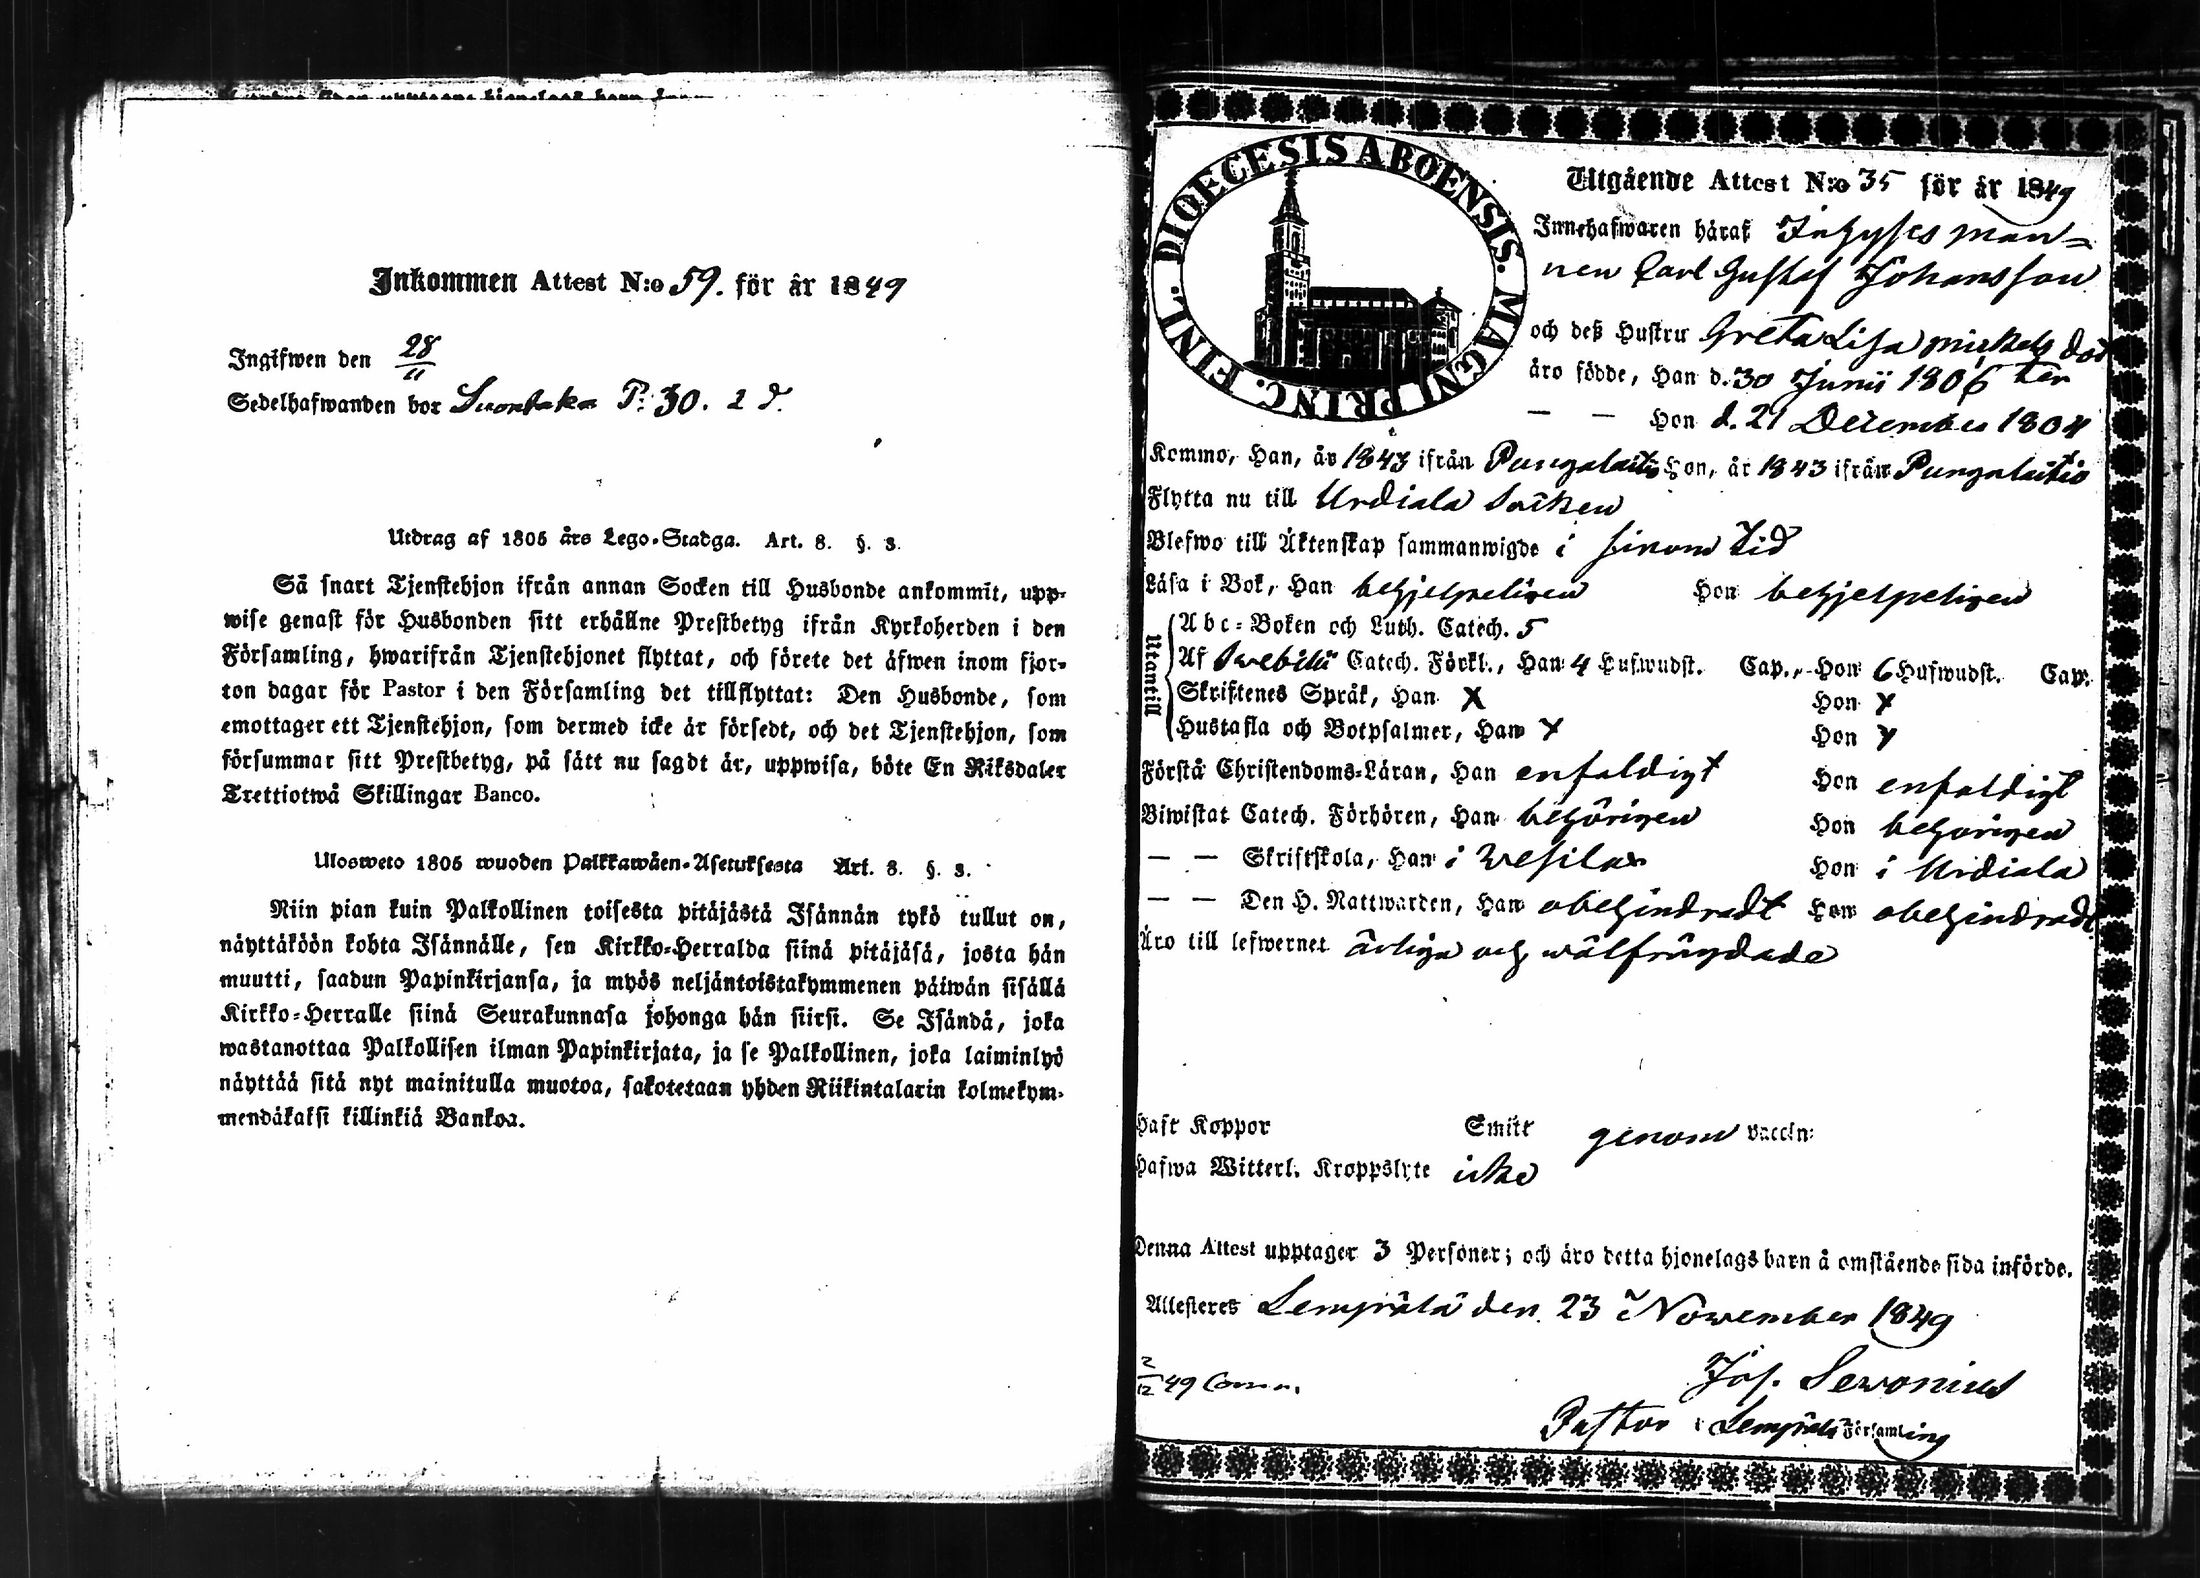 Inkommen Attest N:o 59. för år 1849
Ingifwen den 28/11
Sedelhafwanden bor Suontaka P: 30. 2 d.
Utdrag af 1805 års Lego-Stadga. Art. 8. §. 3.
Så snart Tjenstehjon ifrån annan Socken till Husbonde ankommit, upp-
wise genast för Husbonden sitt erhållne Prestbetyg ifrån Kyrkoherden i den
Församling, hwarifrån Tjenstehjonet flyttat, och förete det äfwen inom fjor-
ton dagar för Pastor i den Församling det tillflyttat: Den Husbonde, som
emottager ett Tjenstehjon, som dermed icke är försedt, och det Tjenstehjon, som
försummar sitt Prestbetyg, på sätt nu sagdt är, uppwisa, böte En Riksdaler
Trettiotwå Skillingar Banco.
Ulosweto 1805 wuoden Palkkawäen-Asetuksesta Art. 8. §. 3.
Niin pian kuin Palkollinen toisesta pitäjästä Isännän tykö tullut on,
näyttäköön kohta Isännälle, sen Kirkko-Herralda siinä pitäjäsä, josta hän
muutti, saadun Papinkirjansa, ja myös neljäntoistakymmenen päiwän sisällä
Kirkko-Herralle siinä Seurakunnasa johonga hän siirsi. Se Isändä, joka
wastanottaa Palkollisen ilman Papinkirjata, ja se Palkollinen, joka laiminlyö
näyttää sitä nyt mainitulla muotoa, sakotetaan yhden Riikintalarin kolmekym-
mendäkaksi killinkiä Bankoa.
DIOECESIS ABOENSIS. MAGNI PRINC. FINL.
Utgående Attest N:o 35 för år 1849
Innehafwaren häraf Inhyses man-
nen Carl Gustaf Johansson
och deß Hustru Greta Lisa Mickels dot
ter
äro födde, Han d. 30 Junii 1806
— — Hon d. 21 December 1804
Kommo, Han, år 1843 ifrån Pungalaitio Hon, år 1843 ifrån Pungalaitio
Flytta nu till Urdiala Socken
Blefwo till Äktenskap sammanwigde i sinom tid
Läsa i Bok, Han behjelpeligen Hon behjelpeligen
Utantill
Abc-Boken och Luth. Catech. 5
Af Svebilii Catech. Förkl., Han 4 Hufwudst. Cap., Hon 6 Hufwudst. Cap.
Skriftenes Språk, Han X Hon X
Hustafla och Botpsalmer, Han X Hon X
Förstå Christendoms-Läran, Han enfaldigt Hon enfaldigt
Biwistat Catech. Förhören, Han behörigen Hon behörigen
— — Skriftskola, Han i Wesilax Hon i Urdiala
— — Den H. Nattwarden, Han obehindradt Hon obehindradt
Äro till lefwernet ärliga och wälfrägdade
Haft Koppor Smitt genom vaccin:
Hafwa Witterl. Kroppslyte icke
Denna Attest upptager 3 Personer; och äro detta hjonelags barn å omstående sida införde.
Attesteres Lempälä den 23 November 1849
2/12 49 Comm.
Jos. Sevonius
Pastor i Lempälä Församling